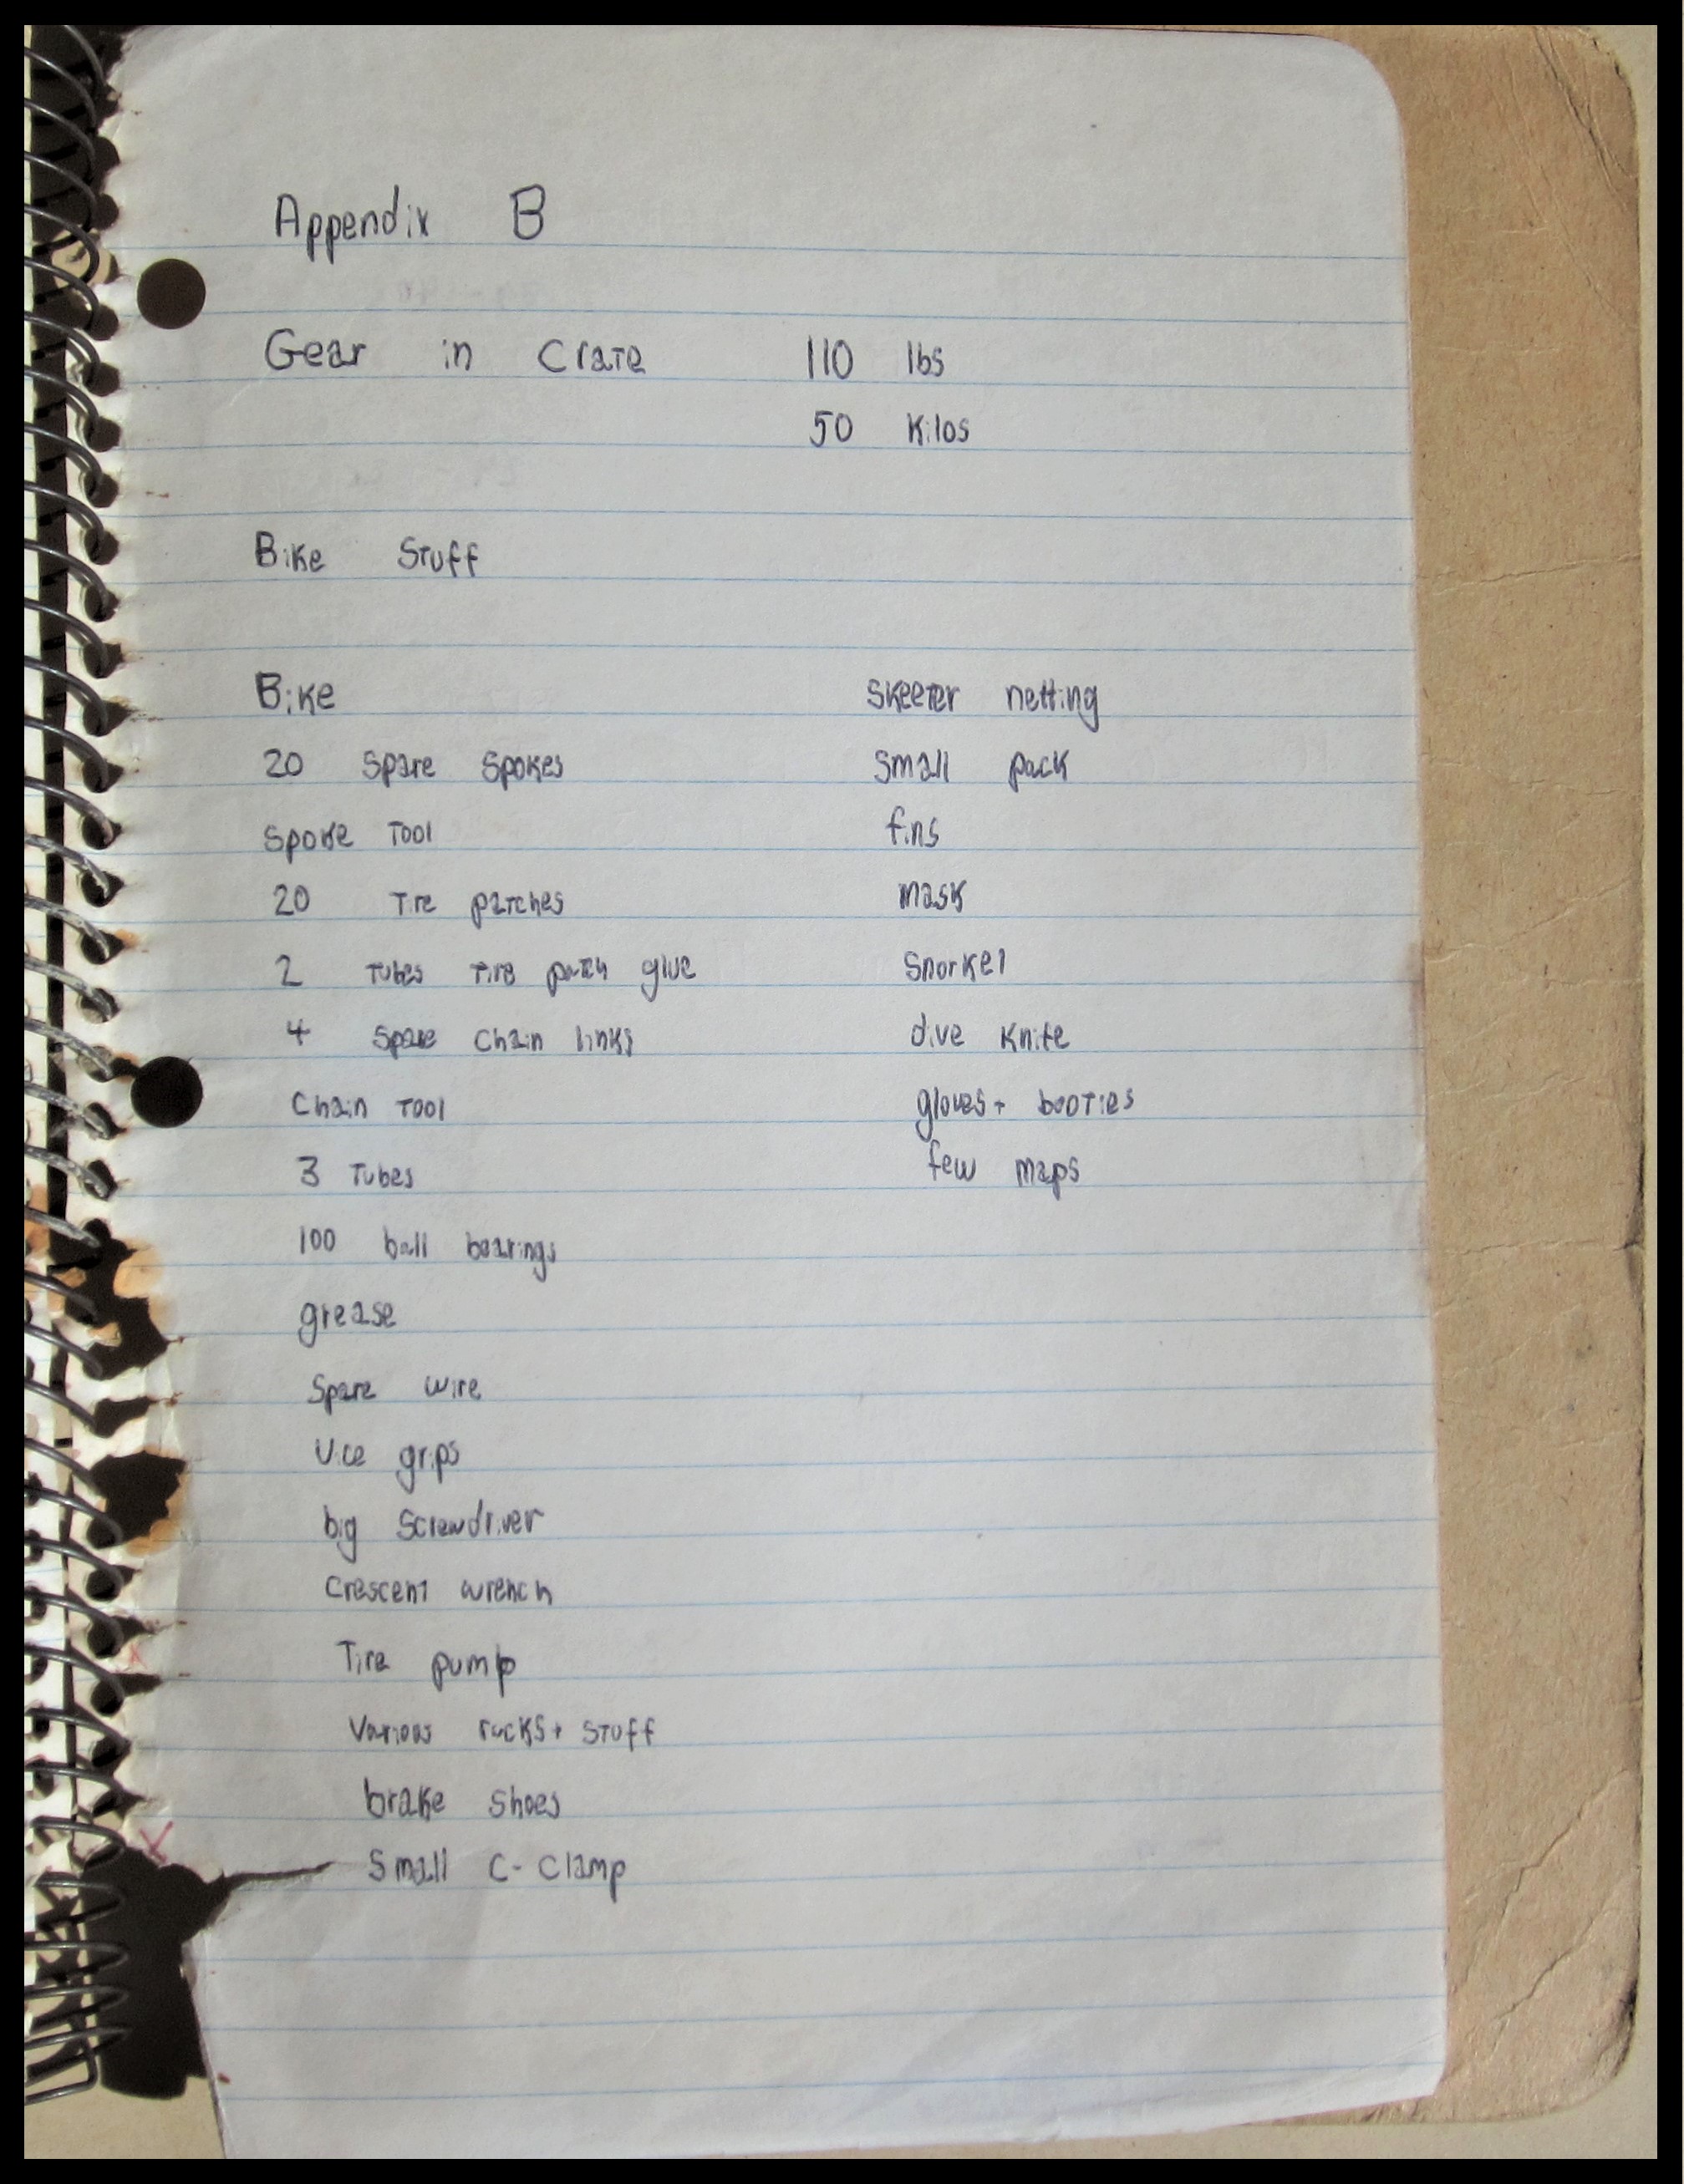 Appendix B
Gear in Crate 110 lbs
50 Kilos
Bike Stuff
Bike
20 Spare Spokes
Spoke Tool
20 Tire patches
2 Tubes Tire patch glue
4 Spare Chain links
Chain Tool
3 Tubes
100 ball bearings
grease
Spare wire
Vice grips
big Screwdriver
Crescent wrench
Tire pump
Various racks + Stuff
brake Shoes
Small C-Clamp
Skeeter netting
Small pack
fins
mask
Snorkel
dive knife
gloves + booties
few maps